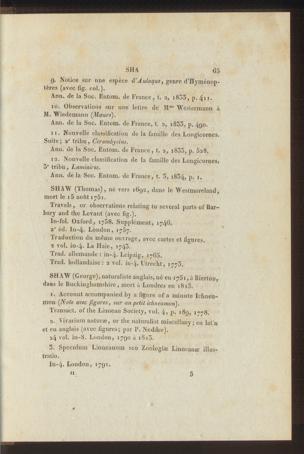 SHA 65
9. Notice sur une espèce d'Aulaque, genre d'Hyménop-
tères (avec fig. col.).
Ann. de la Soc. Entom. de France, t. 2, 1833, p. 411.
10. Observations sur une lettre de Mme Westermann à
M. Wiedemann (Mœurs).
Ann. de la Soc. Entom. de France, t. 2, 1833, p. 490.
11. Nouvelle classification de la famille des Longicornes.
Suite; 2e tribu, Cerambycins.
Ann. de la Soc. Entom. de France, t. 2, 1833, p. 528.
12. Nouvelle classification de la famille des Longicornes.
3e tribu, Lamiaires.
Ann. de la Soc. Entom. de France, t. 3, 1834, p. 1.
SHAW (Thomas), né vers 1692, dans le Westmoreland,
mort le 15 août 1751.
Travels, or observations relating to several parts of Bar-
bary and the Levant (avec fig.).
In-fol. Oxford, 1738. Supplément, 1746.
2e éd. In-4. London, 1757.
Traduction du même ouvrage, avec cartes et figures.
2 vol. in-4. La Haie, 1743.
Trad. allemande : in-4. Leipzig, 1765.
Trad. hollandaise : 2 vol. in-4. Utrecht, 1773.
SHAW (George), naturaliste anglais, né en 1751, à Bierton,
dans le Buckinghamshire, mort à Londres en 1813.
1. Account accompanied by a figure of a minute Ichneu-
mon (Note avec figures, sur un petit ichneumon).
Transact. of the Linnean Society, vol. 4, p. 189, 1778.
2. Vivarium naturæ, or the naturalist miscellany; en latin
et en anglais (avec figures; par P. Nodder).
24 vol. in-8. London, 1790 à 1813.
3. Speculum Linnæanum seu Zoologiæ Linneanæ illus-
tratio.
In-4. London, 1791.
II 5